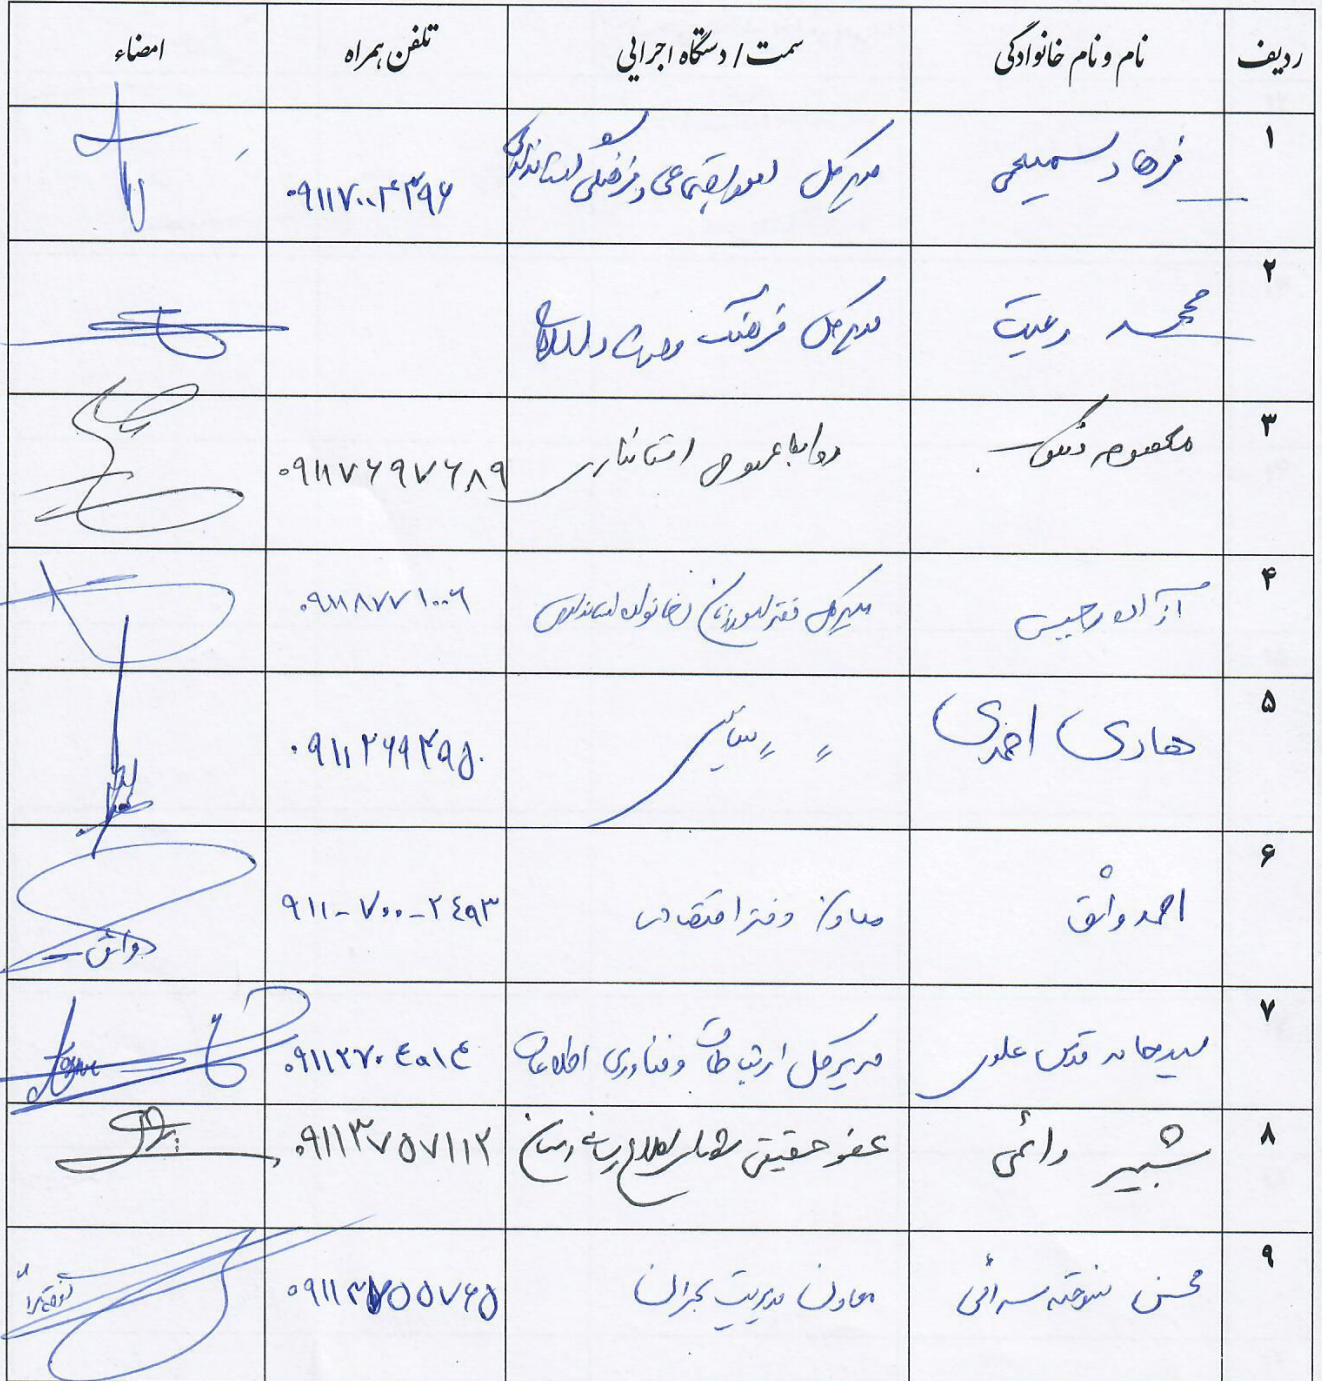 ردیف نام و نام خانوادگی سمت / دستگاه اجرایی تلفن همراه امضاء
۱ فرهاد سمیعی مدیرکل امور اجتماعی و فرهنگی استانداری ۰۹۱۱۷۰۰۴۳۹۶
۲ محمد رعیت مدیرکل فرهنگ و ارشاد اسلامی
۳ معصومه روابط عمومی استانداری ۰۹۱۱۷۶۹۷۶۸۹
۴ آزاده رجبی مدیرکل دفتر امور زنان و خانواده استانداری ۰۹۱۱۸۷۷۱۰۰۶
۵ هادی احمدی 〃 〃 سیاسی ۰۹۱۱۲۶۹۳۹۵۰
۶ احمد واثق معاون دفتر اقتصادی ۹۱۱-۷۰۰-۲٤۹۳
۷ سیدحامد قدس علوی مدیرکل ارتباطات و فناوری اطلاعات ۰۹۱۱۲۷۰٤۵۱٤
۸ شبیر دائمی عضو حقیقی شورای اطلاع رسانی استان ۰۹۱۱۳۷۵۷۱۱۲
۹ محسن سوخته سرائی معاون مدیریت بحران